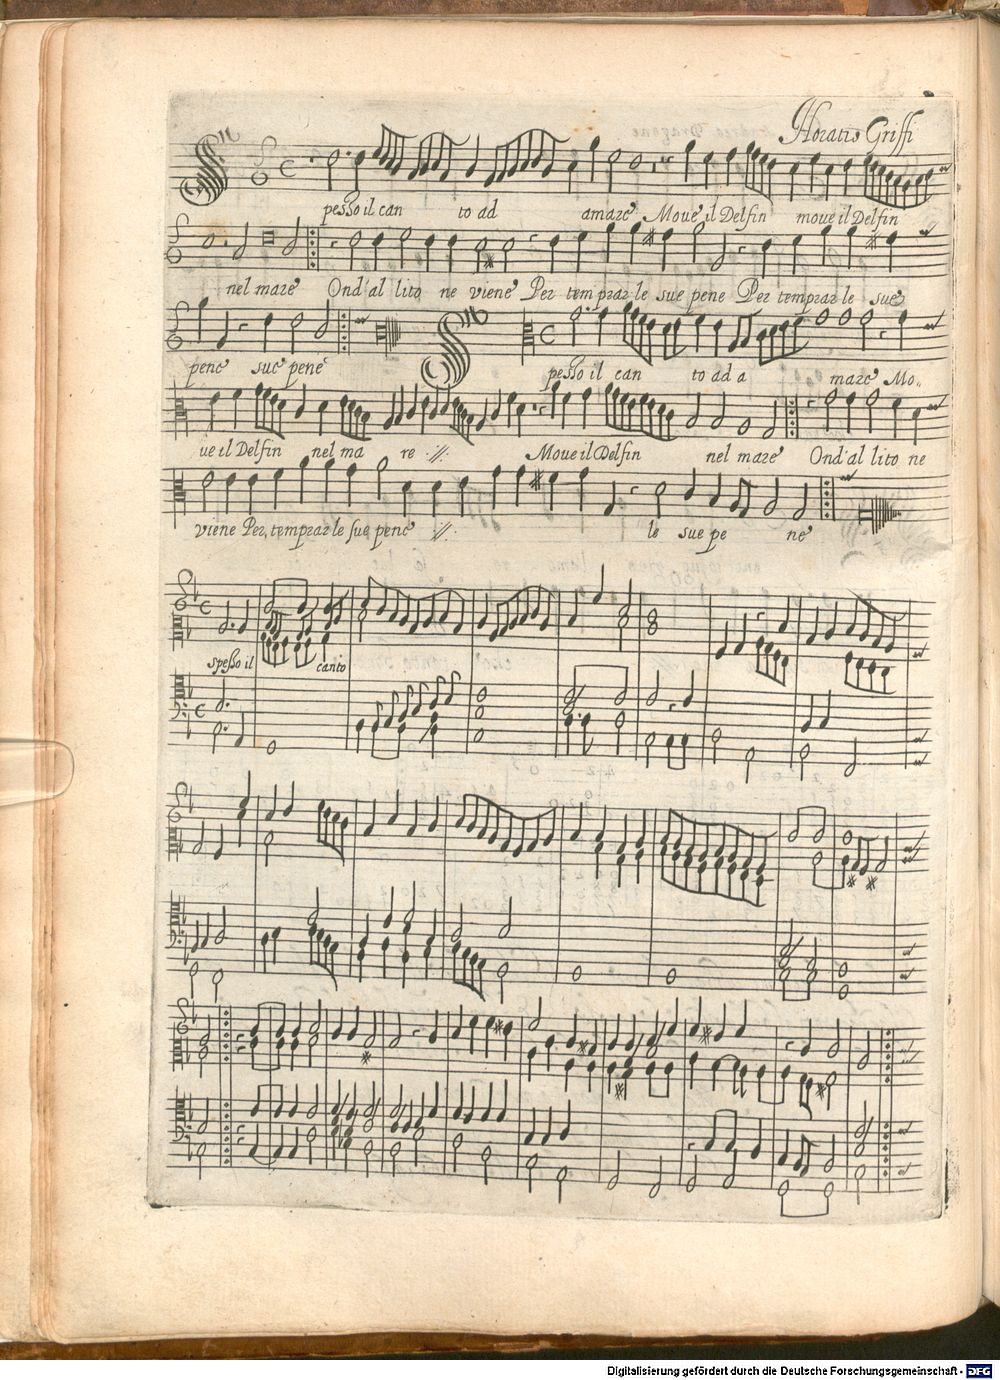 Horatio Griffi
Spesso il can to ad amare Moue il Delfin moue il Delfin
nel mare Ond'al lito ne viene Per temprar le sue pene Per temprar le sue
pene sue pene
Spesso il can to ad a mare Mo,,
ue il Delfin nel ma re ://: Moue il Delfin nel mare Ond'al lito ne
viene Per, temprar le sue pene ://: le sue pe ne
spesso il canto
Digitalisierung gefördert durch die Deutsche Forschungsgemeinschaft - DFG